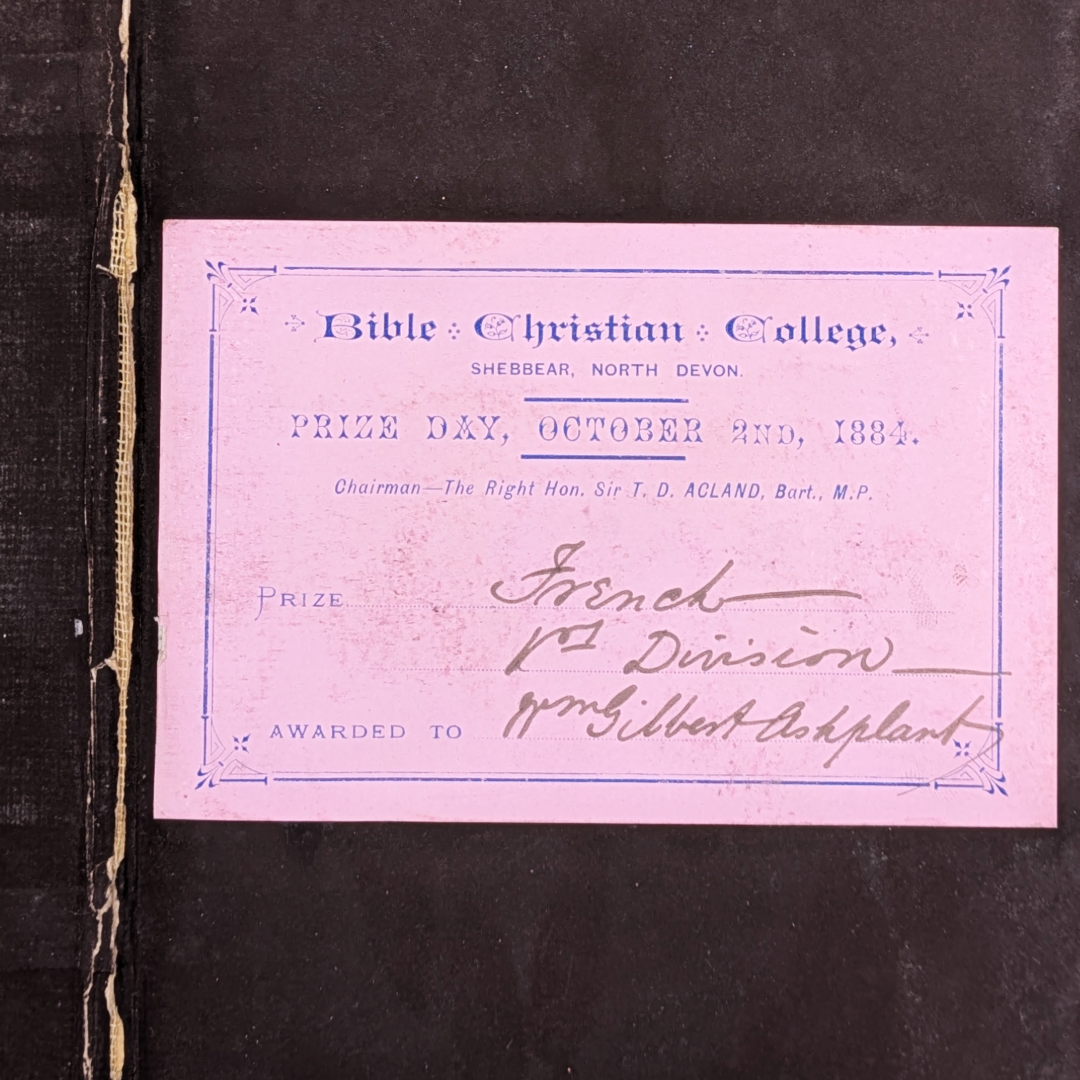 Bible Christian College,
SHEBBEAR, NORTH DEVON.
PRIZE DAY, OCTOBER 2ND, 1884.
Chairman—The Right Hon. Sir T. D. ACLAND, Bart., M.P.
PRIZE French
1st Division
AWARDED TO Wm Gilbert Ashplant